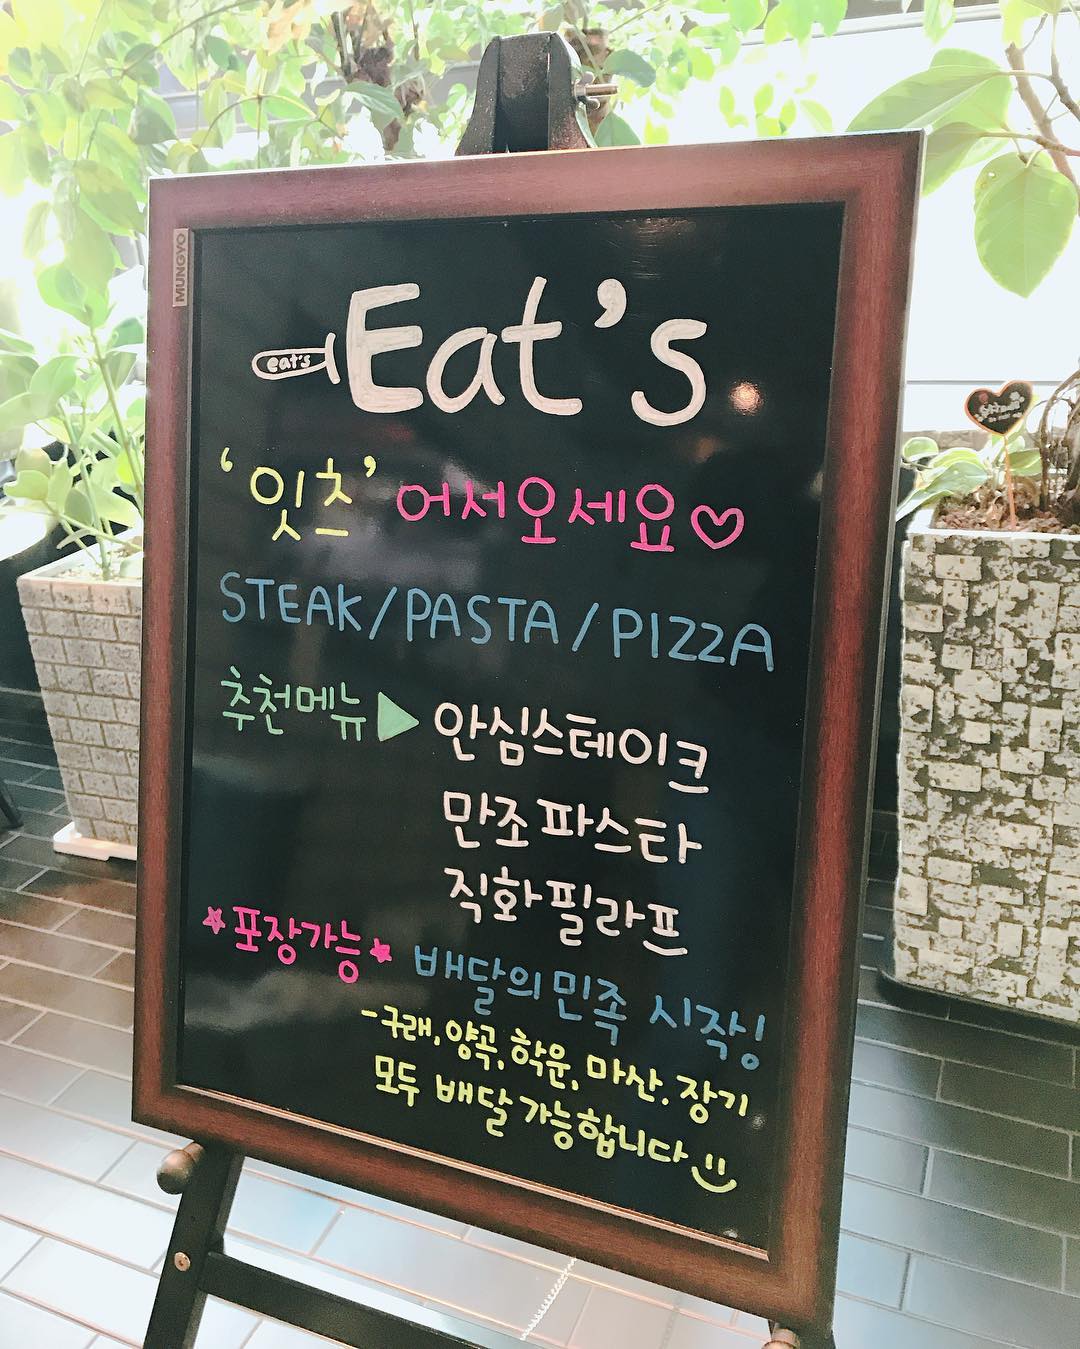 MUNGYO
eat's Eat's
'잇츠' 어서오세요♡
STEAK/PASTA/PIZZA
추천메뉴▶ 안심스테이크
만조파스타
직화필라프
*포장가능* 배달의민족 시작!
-구래, 양곡, 학운, 마산, 장기
모두 배달가능합니다